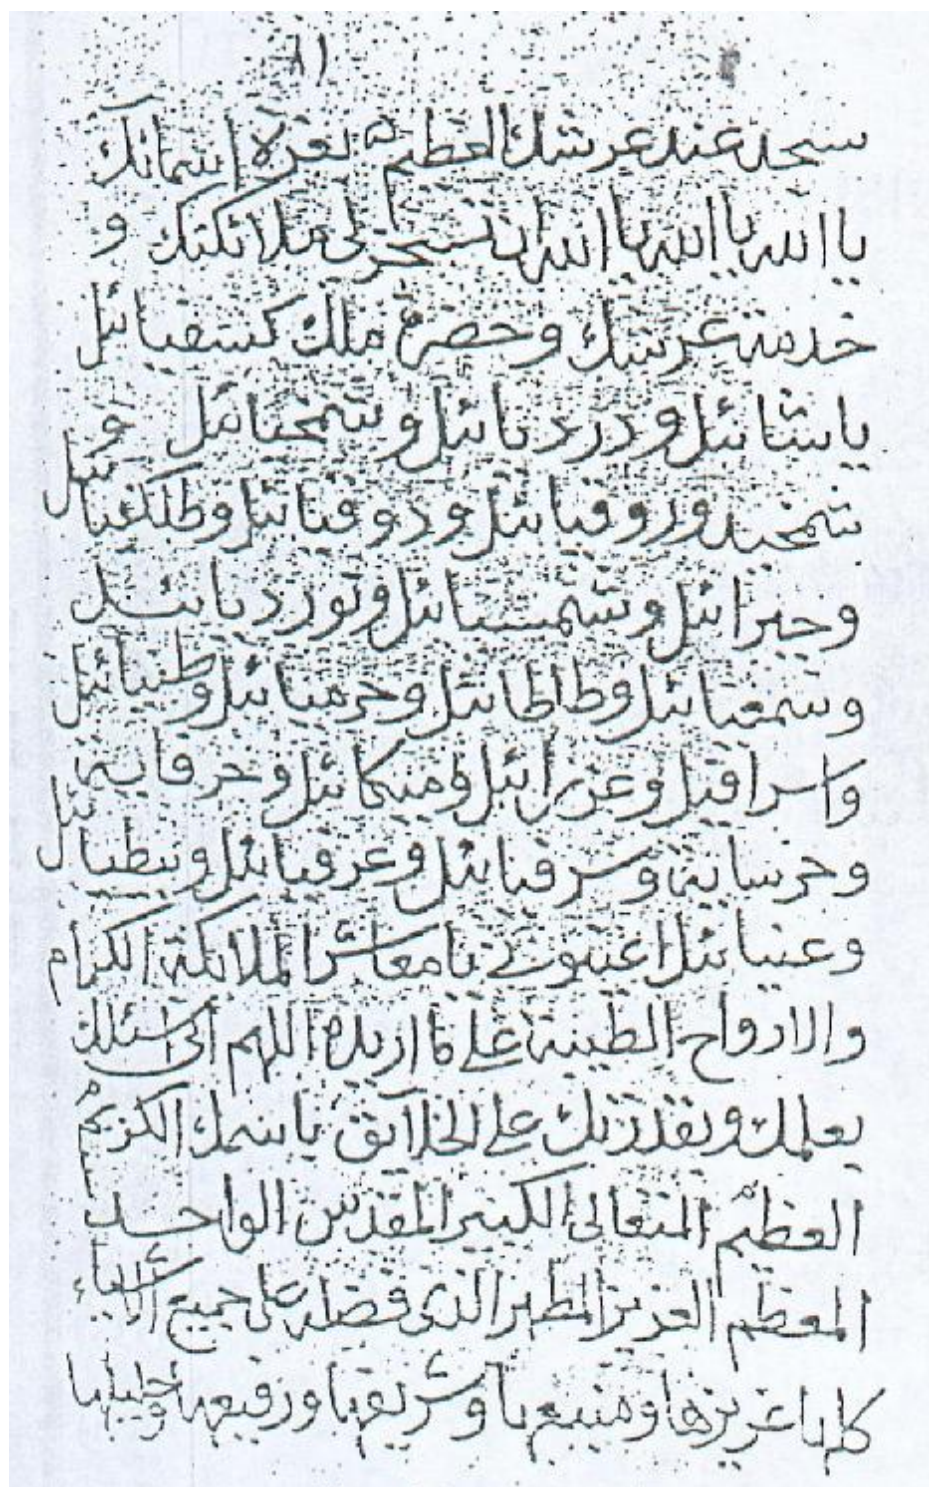 ٨١
سجد عند عرشك العظيم بعزة اسمائك
يا الله يا الله يا الله ان تسخر لى ملائكتك و
خدمة عرشك و حضرة ملك كسفيائيل
ياشائيل و دردبائيل و شمخيائيل و
شمخيد ورو قيائيل ودو قيائيل و طلكفيائيل
و جبرائيل و شمسائيل و نوردبائيل
و سمعيائيل و طاطائيل و حرميائيل و طنيائيل
و اسرافيل و عزرائيل و ميكائيل و حرفاية
و حرساية و سرفيائيل و عرفيائيل و
و عنيائيل اغيثونى يا معاشر الملائكة الكرام
والارواح الطيبة على ما اريده اللهم انى اسئلك
بعلمك و بقدرتك على الخلائق باسمك الكريم
العظيم المتعالى الكبير المقدس الواحد
المعظم العزيز المطهر الذى فضله على جميع الاشياء
كلها عزيزها و منيعها و شريفها و رفيعها و جليلها